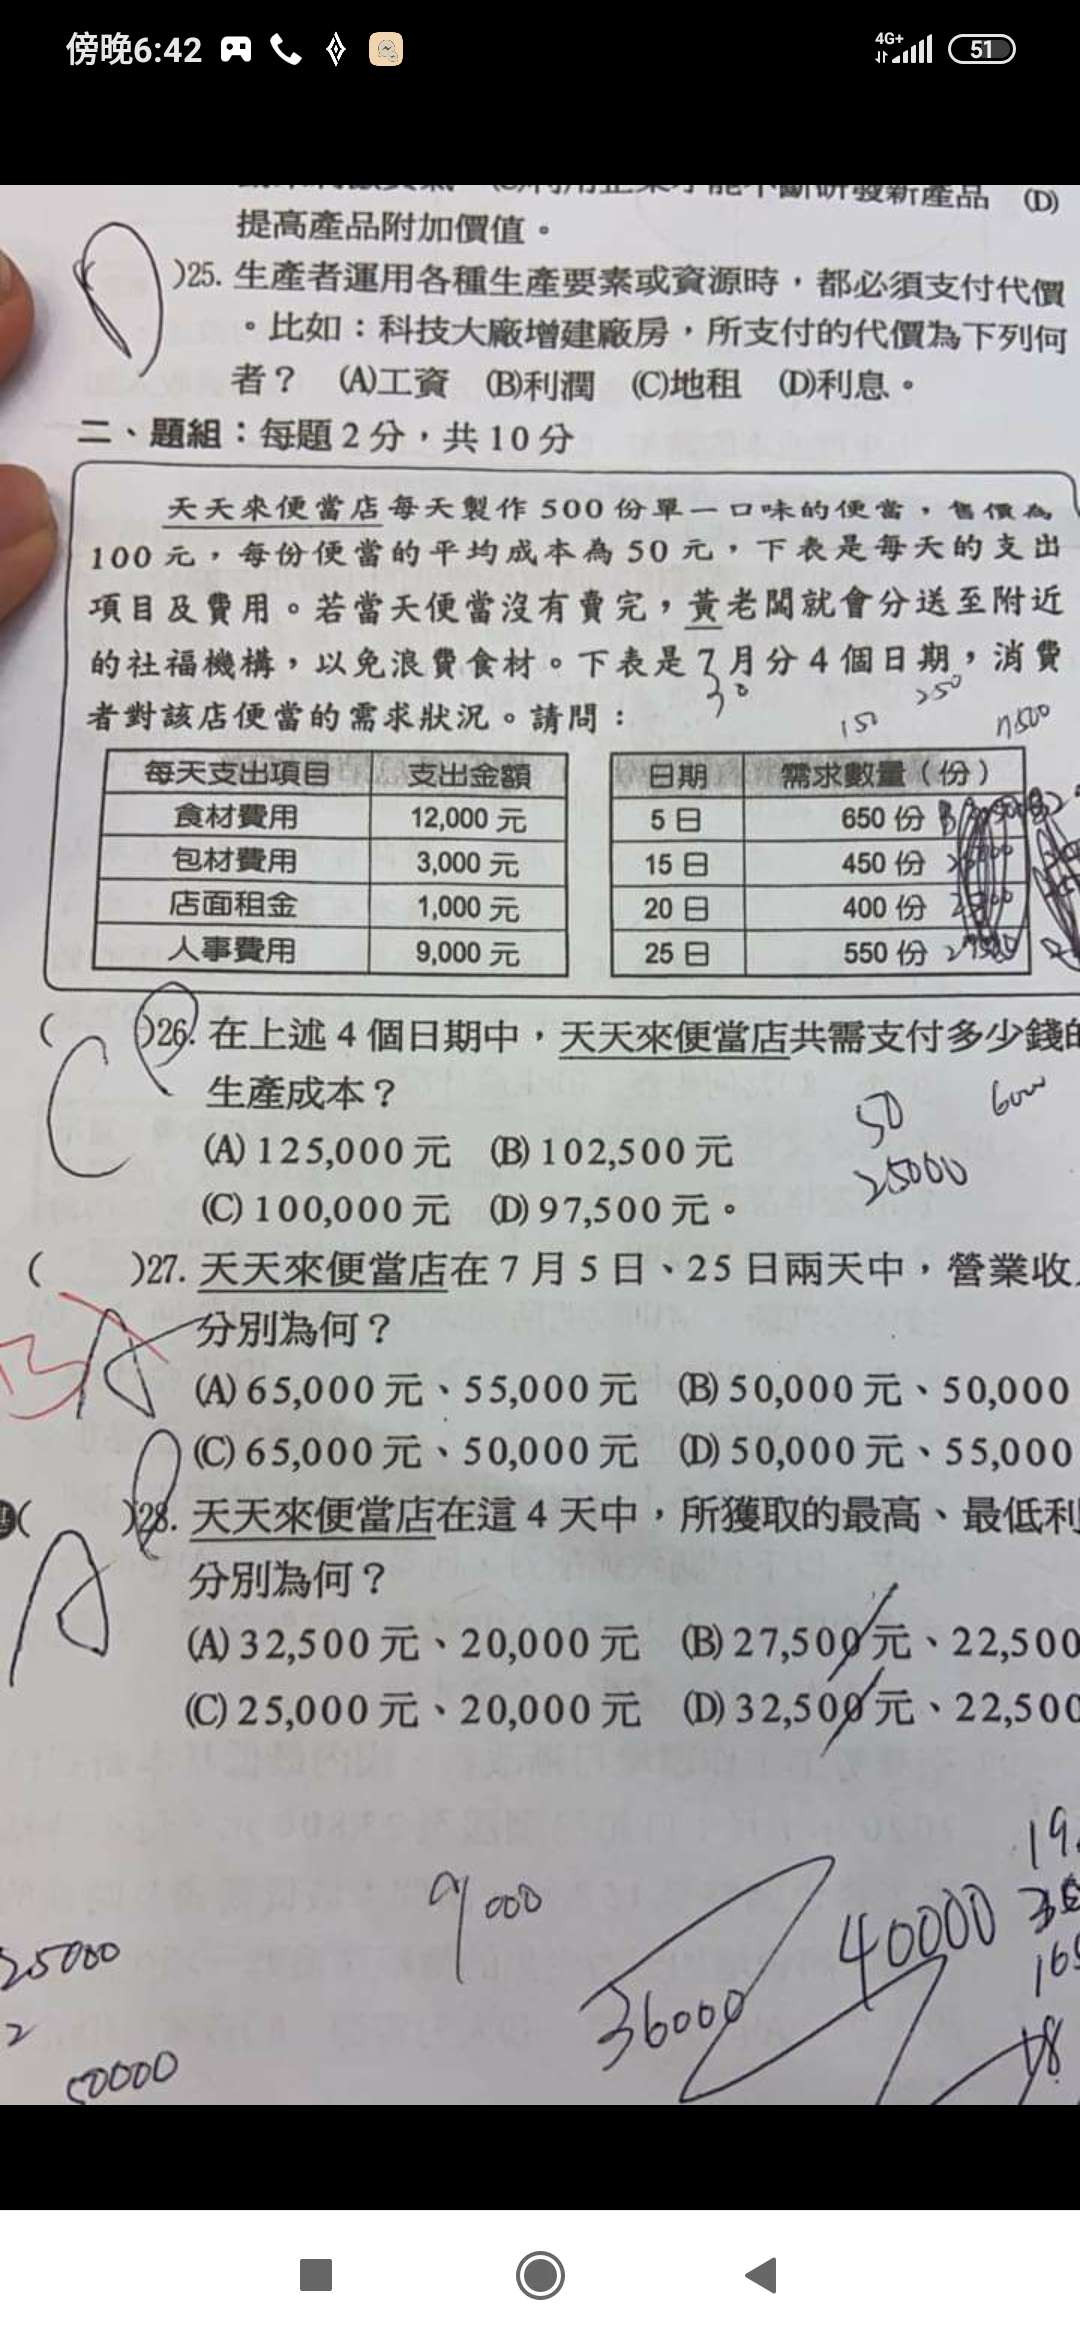 傍晚6:42
4G+
51
提高產品附加價值。
)25. 生產者運用各種生產要素或資源時，都必須支付代價
。比如：科技大廠增建廠房，所支付的代價為下列何
者？ (A)工資 (B)利潤 (C)地租 (D)利息。
二、題組：每題2分，共10分
天天來便當店每天製作500份單一口味的便當，售價為
100元，每份便當的平均成本為50元，下表是每天的支出
項目及費用。若當天便當沒有賣完，黃老闆就會分送至附近
的社福機構，以免浪費食材。下表是7月分4個日期，消費
者對該店便當的需求狀況。請問：
30
250
150
每天支出項目 支出金額
食材費用 12,000元
包材費用 3,000元
店面租金 1,000元
人事費用 9,000元
日期 需求數量（份）
5日 650份
15日 450份
20日 400份
25日 550份
C
( )26. 在上述4個日期中，天天來便當店共需支付多少錢的
生產成本？
(A)125,000元 (B)102,500元
(C)100,000元 (D)97,500元。
50
25000
( )27. 天天來便當店在7月5日、25日兩天中，營業收
分別為何？
B A
(A)65,000元、55,000元 (B)50,000元、50,000
(C)65,000元、50,000元 (D)50,000元、55,000
( )28. 天天來便當店在這4天中，所獲取的最高、最低利
分別為何？
A
(A)32,500元、20,000元 (B)27,500元、22,500
(C)25,000元、20,000元 (D)32,500元、22,500
9000
40000
36000
25000
2
50000